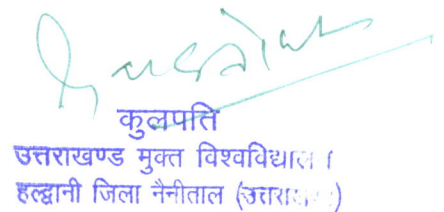 कुलपति
उत्तराखण्ड मुक्त विश्वविद्यालय
हल्द्वानी जिला नैनीताल